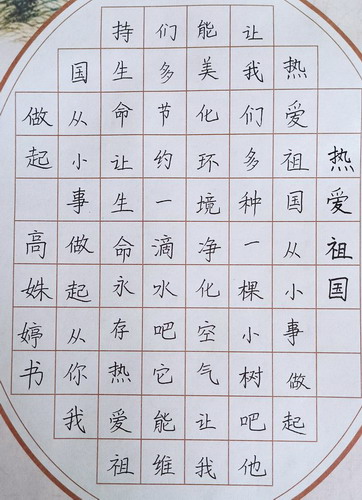 热爱祖国
热爱祖国从小事做起
让我们多种一棵小树吧他
能美化环境净化空气让我
们多节约一滴水吧它能维
持生命让生命永存热爱祖
国从小事做起从你我
做起 高姝婷书